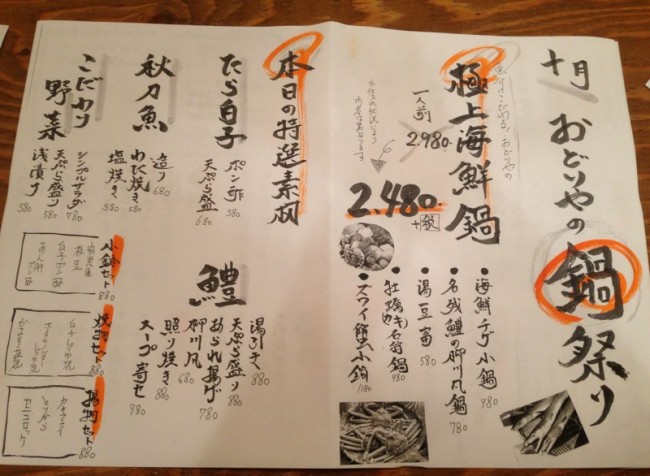 十月 おどりやの鍋祭り
極上海鮮鍋
一人前
2.980
2.480
+税
・海鮮チゲ小鍋 980
・名残鱧の柳川風鍋 780
・湯豆富 580
・牡蠣(カキ)石狩鍋 980
・ズワイ蟹小鍋 1180
本日の特選素材
たら白子
ポン酢 580
天ぷら盛り 680
秋刀魚
造り 680
わた焼き 580
塩焼き 580
こだわり野菜
シンプルサラダ 780
天ぷら盛り 580
浅漬け 580
鱧
湯引き 880
天ぷら盛り 880
あられ揚げ 780
柳川風 680
照り焼き 880
スープ寄せ 980
小鉢セット 880
枝豆
白子ポン酢
あん肝ポン酢
焼物セット 880
揚物セット 880
カキフライ